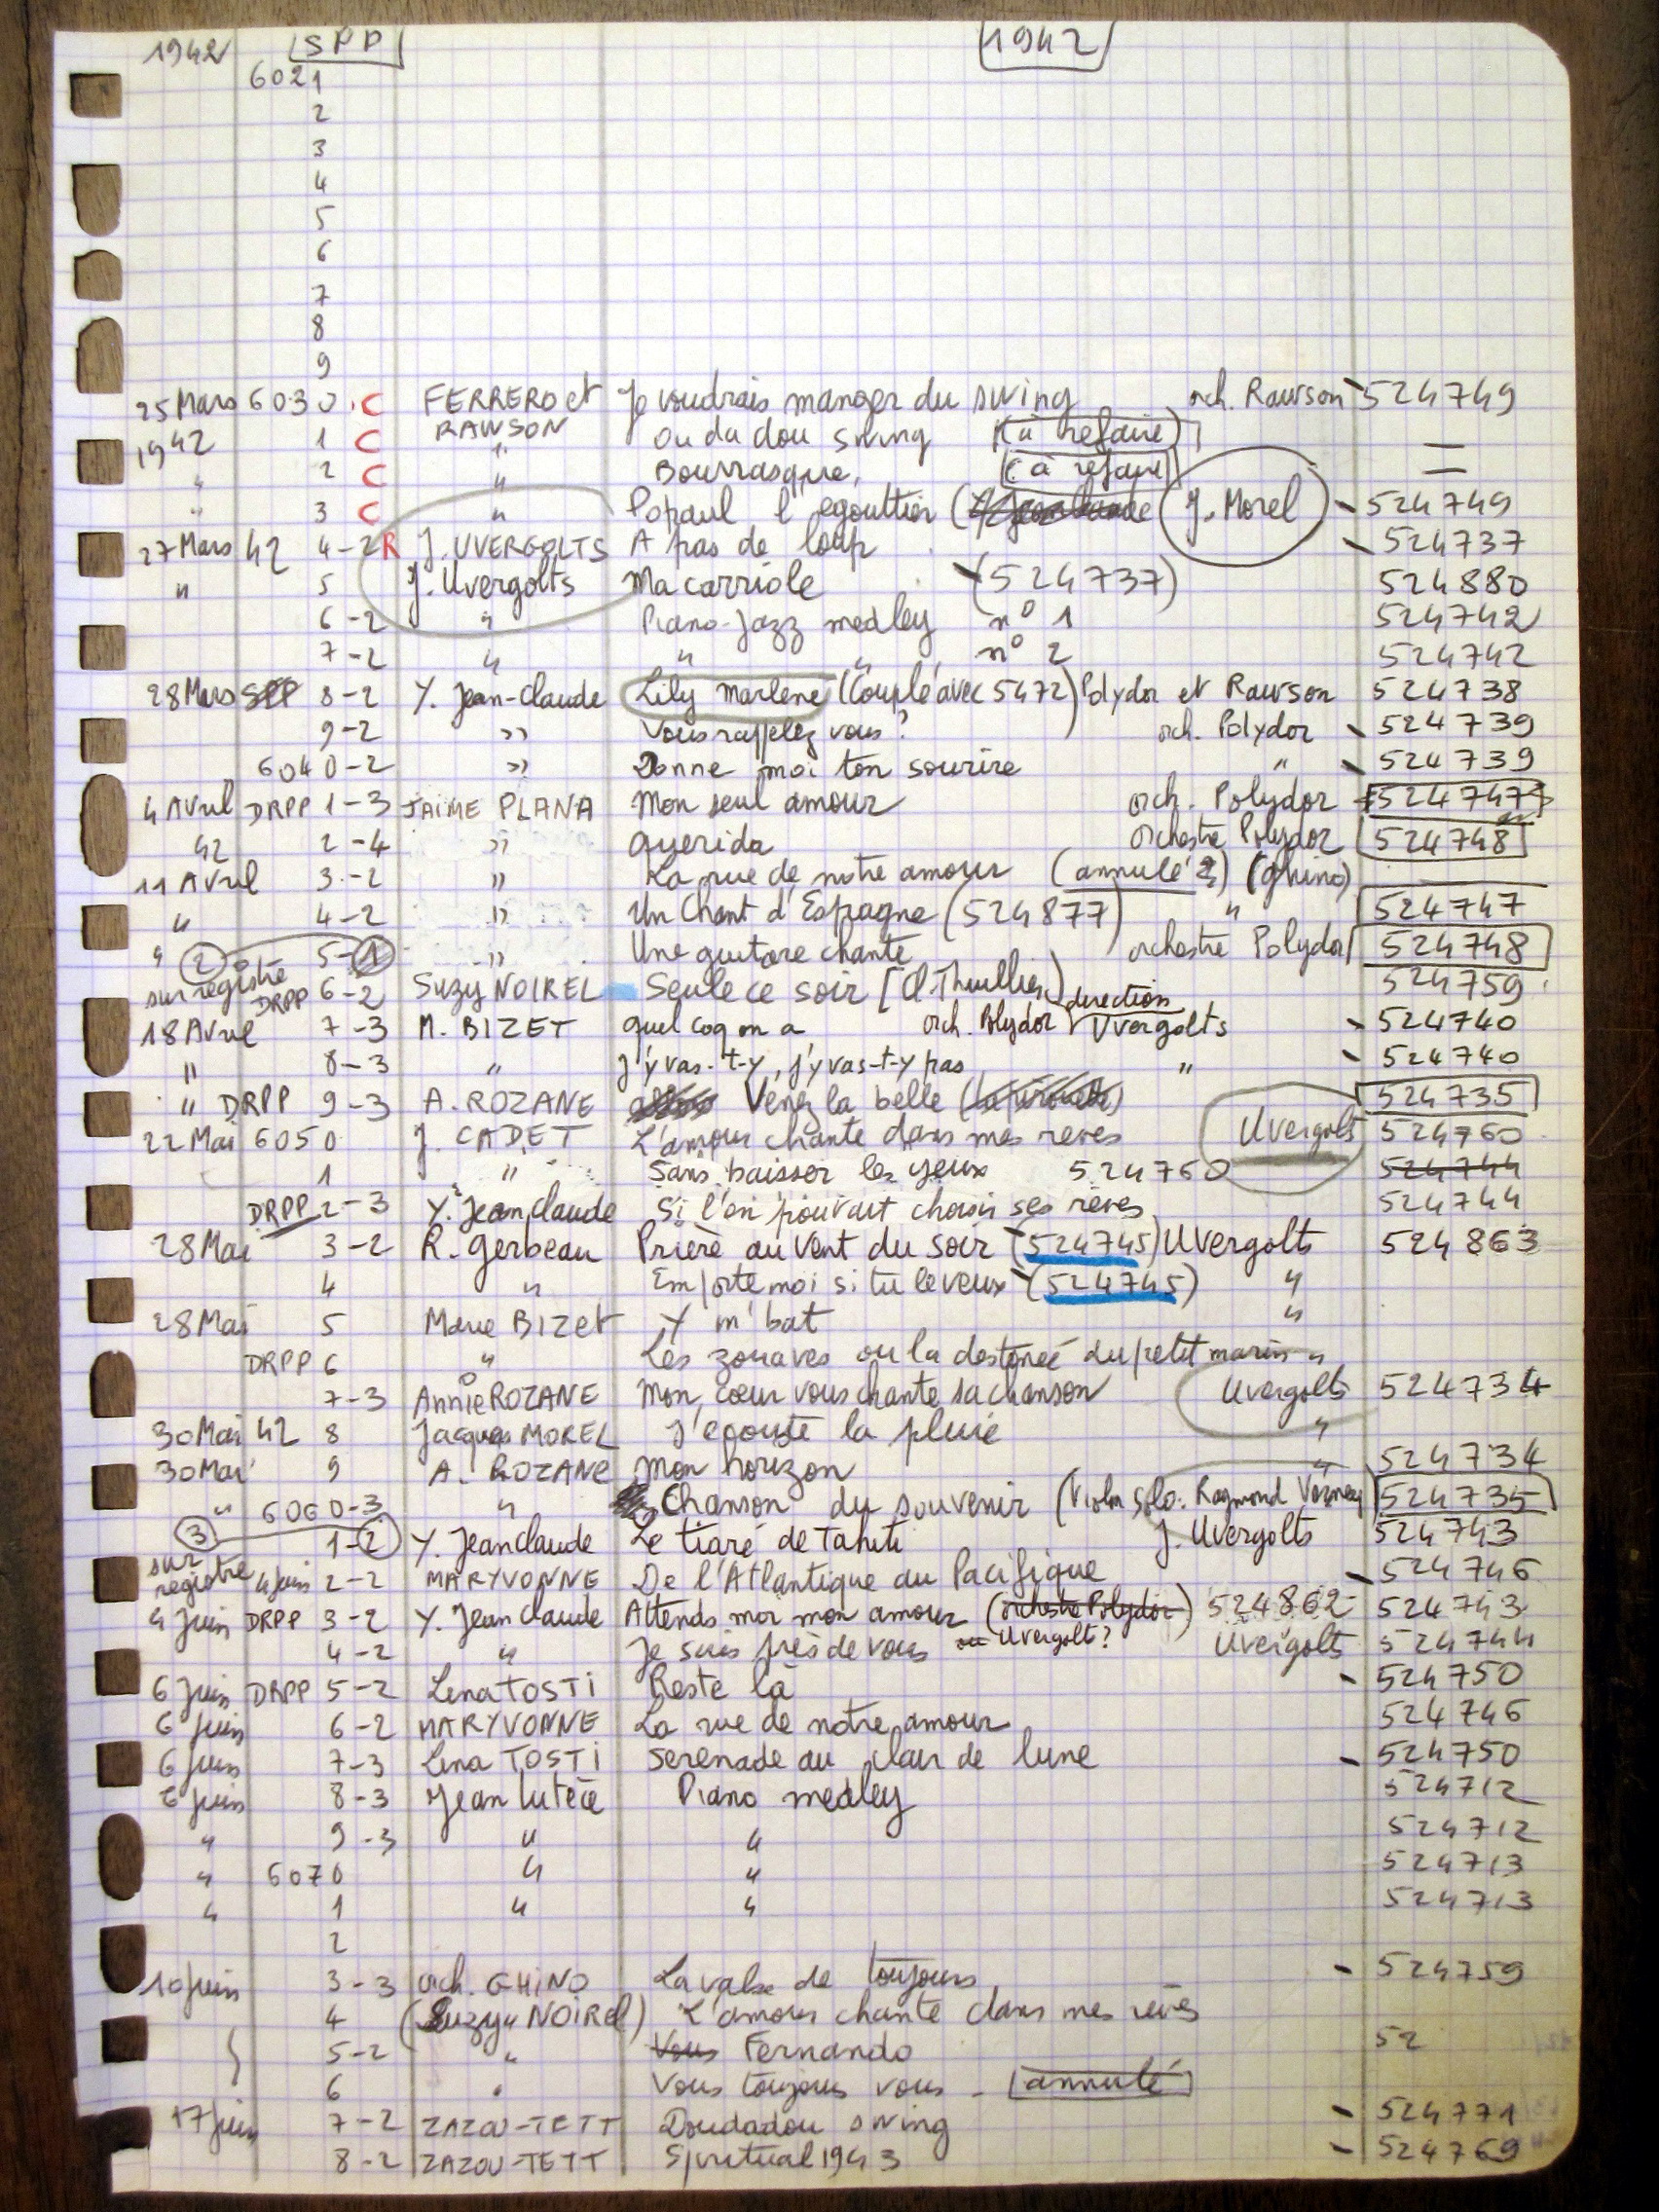 1942 SPP 1942
6021
2
3
4
5
6
7
8
9
25 Mars 6030 . C FERRERO et Je voudrais manger du swing orch. Rawson 524749
1942 1 C RAWSON " Ou da dou swing (à refaire) =
" 2 C " Bourrasque, (à refaire)
" 3 C " Popaul l'egouttier ( J. Morel 524749
27 Mars 42 4-2 R J. UVERGOLTS A pas de loup 524737
" 5 J. Uvergolts Ma carriole (524737) 524880
6-2 " Piano-Jazz medley n° 1 524742
7-2 " " " n° 2 524742
28 Mars SPP 8-2 Y. Jean-Claude Lily Marlene (Couplé avec 5472) Polydor et Rawson 524738
9-2 " Vous rappelez vous? orch. Polydor 524739
6040-2 " Donne moi ton sourire " 524739
4 Avril DRPP 1-3 JAIME PLANA Mon seul amour orch. Polydor 524747
42 2-4 " Querida Orchestre Polydor 524748
11 Avril 3-2 " La rue de notre amour (annulé ?) (Ghino)
" 4-2 " Un Chant d'Espagne (524877) " 524747
" 2 5-1 " Une guitare chante orchestre Polydor 524748
sur registre DRPP 6-2 Suzy NOIREL Seule ce soir [d. Thuillier) 524759
18 Avril 7-3 M. BIZET quel coq on a orch. Polydor direction Uvergolts 524740
" 8-3 " J'y vas-t-y, j'y vas-t-y pas " 524740
" DRPP 9-3 A. ROZANE Venez la belle 524735
22 Mai 6050 J. CADET L'amour chante dans mes reves Uvergolt 524760
1 " Sans baisser les yeux 524760 524744
DRPP 2-3 Y. Jean Claude Si l'on pouvait choisir ses reves 524744
28 Mai 3-2 R. Gerbeau Prière au Vent du Soir (524745) Uvergolts 524863
4 " Emporte moi si tu le veux (524745) "
28 Mai 5 Marie BIZET Y m'bat "
DRPP 6 " Les zouaves ou la destinée du petit marin "
7-3 Annie ROZANE Mon cœur vous chante sa chanson Uvergolts 524734
30 Mai 42 8 Jacques MOREL J'ecoute la pluie "
30 Mai 9 A. ROZANE Mon horizon " 524734
" 6060-3 " Chanson du souvenir (Violon solo: Raymond Verney 524735
3 1-2 Y. Jean Claude Le tiaré de Tahiti J. Uvergolts 524743
sur registre 4 juin 2-2 MARYVONNE De l'Atlantique au Pacifique 524746
4 juin DRPP 3-2 Y. Jean Claude Attends moi mon amour (orchestre Polydor) 524862 524743
4-2 " Je suis près de vous ou Uvergolt? Uvergolt 524744
6 Juin DRPP 5-2 Lena TOSTI Reste là 524750
6 Juin 6-2 MARYVONNE La rue de notre amour 524746
6 juin 7-3 Lina TOSTI Serenade au clair de lune 524750
6 juin 8-3 Jean Lutèce Piano medley 524712
" 9-3 " " 524712
" 6070 " " 524713
" 1 " " 524713
2
10 juin 3-3 orch. GHINO La valse de toujours 524759
4 (Suzy " NOIREL) L'amour chante dans mes rêves
5-2 " Vous Fernando 52
6 " Vous toujours vous - annulé
17 juin 7-2 ZAZOU-TETT Doudadou swing 524771
8-2 ZAZOU-TETT Spiritual 1943 524769